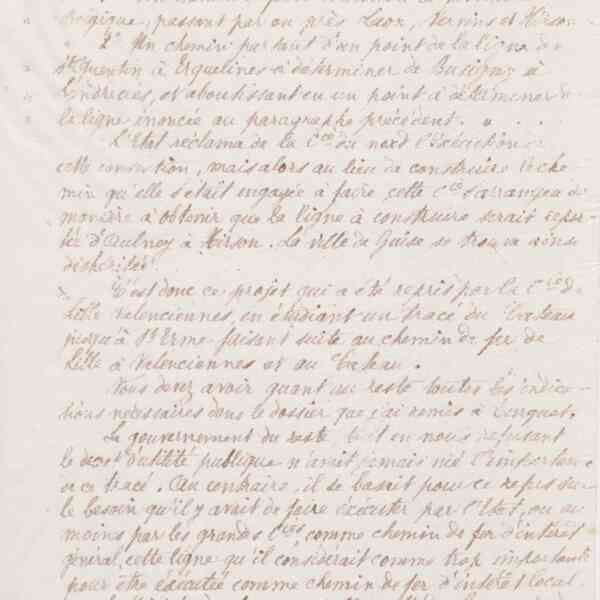 Belgique, passant par ou près Laon, Vervins et Hirson
2º Un chemin partant d'un point de la ligne de
St Quentin à Erquelines à déterminer de Busigny à
Landrecies, et aboutissant en un point à déterminer de
la ligne énoncée au paragraphe précédent. "
L'Etat réclama de la Cie du nord l'exécution de
cette convention, mais alors au lieu de construire le che
min qu'elle s'était engagée à faire cette Cie s'arrangea de
manière à obtenir que la ligne à construire serait repor
tée d'Aulnoy à Hirson. La ville de Guise se trouva ainsi
déshéritée.
C'est donc ce projet qui a été repris par la Cie de
Lille Valenciennes, en étudiant un tracé du Cateau
jusqu'à St Erme faisant suite au chemin de fer de
Lille à Valenciennes et au Cateau.
Vous devez avoir quant au reste toutes les indica-
tions nécessaires dans le dossier que j'ai remis à
Le gouvernement du reste tout en nous refusant
le décret d'utilité publique n'avait jamais nié l'importance
de ce tracé. Au contraire, il se basait pour ce refus sur
le besoin qu'il y avait de faire exécuter par l'Etat, ou au
moins par les grandes Cies comme chemin de fer d'intérêt
général, cette ligne qu'il considérait comme trop importante
pour être exécutée comme chemin de fer d'intérêt local.